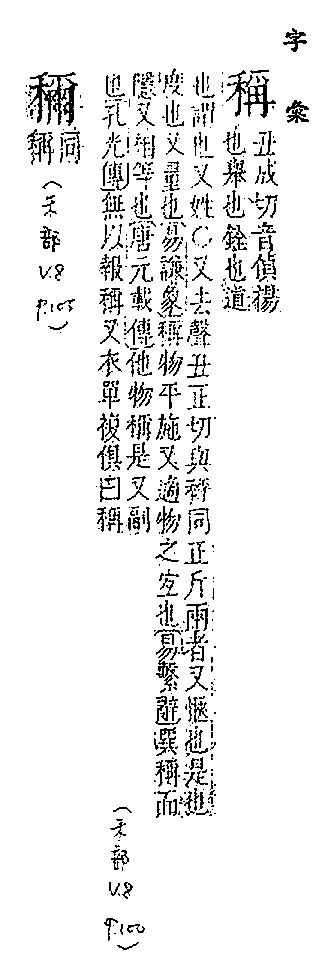 字彙
稱 丑成切音偵揚
也舉也銓也道
也謂也又姓○又去聲丑正切與秤同正斤兩者又愜也是也
度也又量也易謙象稱物平施又適物之宜也易繫辭巽稱而
隱又相等也唐元載傳他物稱是又副
也孔光傳無以報稱又衣單複俱曰稱
(禾部
V.8
P.100)
同
稱
(禾部
V.8
P.105)